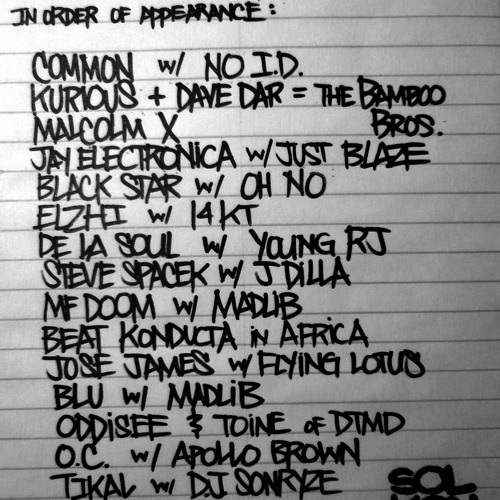 IN ORDER OF APPEARANCE:
COMMON w/ NO I.D.
KURIOUS + DAVE DAR = THE BAMBOO
BROS.
MALCOLM X
JAY ELECTRONICA w/ JUST BLAZE
BLACK STAR w/ OH NO
ELZHI w/ 14KT
DE LA SOUL w/ YOUNG RJ
STEVE SPACEK w/ J DILLA
MF DOOM w/ MADLIB
BEAT KONDUCTA iN AFRiCA
JOSE JAMES w/ FLYING LOTUS
BLU w/ MADLiB
ODDiSEE & TOiNE OF DTMD
O.C. w/ APOLLO BROWN
TIKAL w/ DJ SONRYZE
SOL